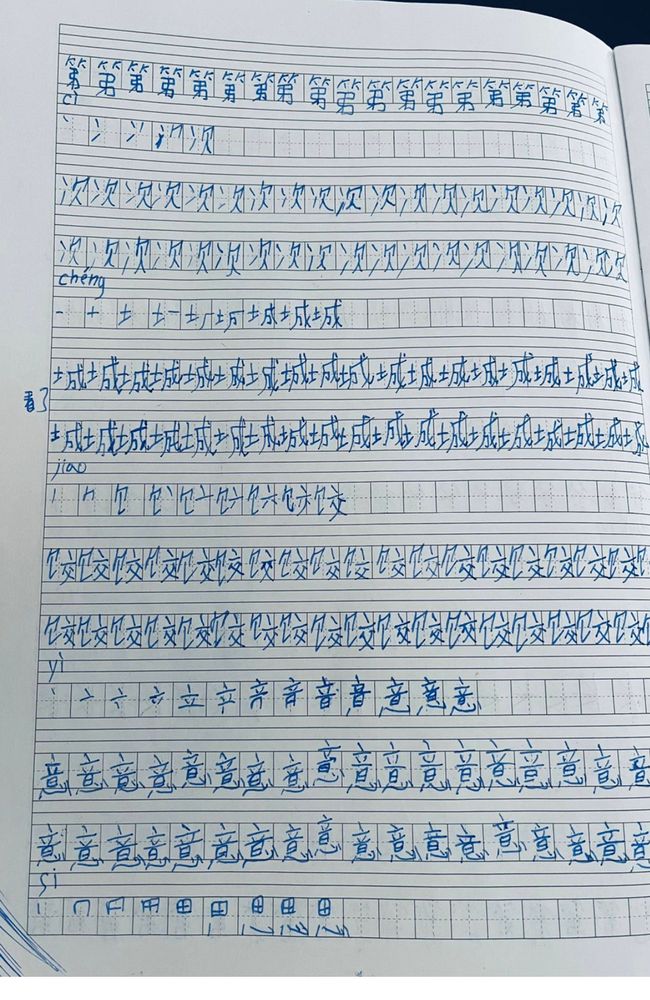 第第第第第第第第第第第第第第第第第第第
cì
丶 冫 次
次次次次次次次次次次次次次次次次次次次
次次次次次次次次次次次次次次次次次次次
chéng
一 十 土 城城
看了
城城城城城城城城城城城城城城城城城城城
城城城城城城城城城城城城城城城城城城城
jiao
丨 饣 饺
饺饺饺饺饺饺饺饺饺饺饺饺饺饺饺饺饺饺饺
饺饺饺饺饺饺饺饺饺饺饺饺饺饺饺饺饺饺饺
yì
丶 亠 立 音 意 意 意
意意意意意意意意意意意意意意意意意意
意意意意意意意意意意意意意意意意意意
si
丨 冂 田 思